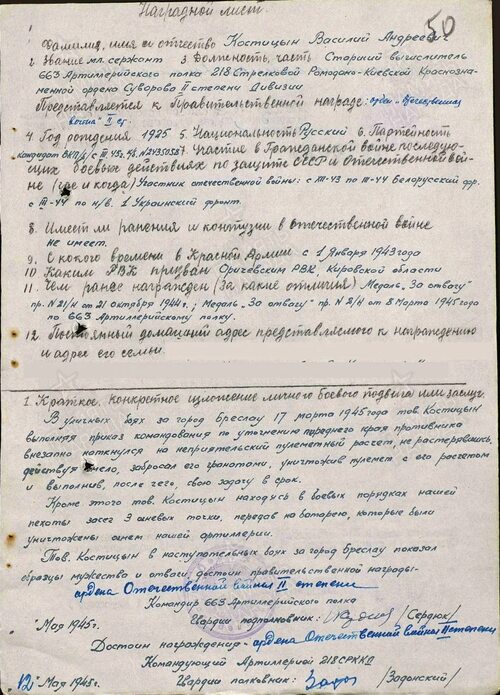 50
Наградной лист.
1. Фамилия, имя и отчество Костицын Василий Андреевич
2. Звание мл. сержант 3. Должность, часть Старший вычислитель
663 Артиллерийского полка 218 Стрелковой Ромодано-Киевской Краснозна-
менной ордена Суворова II степени Дивизии
Представляется к Правительственной награде: орден "Отечественная
война" II ст.
4. Год рождения 1925 5. Национальность Русский 6. Партийность
кандидат ВКП/б/ с III-45г. 7. Участие в Гражданской войне, последую-
щих боевых действиях по защите СССР и Отечественной вой-
не (где и когда) Участник отечественной войны: с III-43 по III-44 Белорусский фр.
с III-44 по н/в. 1 Украинский фронт.
8. Имеет ли ранения и контузии в отечественной войне
не имеет.
9. С какого времени в Красной Армии с 1 Января 1943 года
10 Каким РВК призван Оричевским РВК, Кировской области
11. Чем ранее награжден (За какие отличия) Медаль "За отвагу"
пр. N 21/н от 21 октября 1944 г, Медаль "За отвагу" пр. N 2/н от 8 Марта 1945 года
по 663 Артиллерийскому полку.
12. Постоянный домашний адрес представляемого к награждению
и адрес его семьи
1. Краткое, конкретное изложение личного боевого подвига или заслуг.
В уличных боях за город Бреслау 17 марта 1945 года тов. Костицын
выполняя приказ командования по уточнению переднего края противника
внезапно наткнулся на неприятельский пулеметный расчет, не растерявшись,
действуя смело, забросал его гранатами, уничтожив пулемет с его расчетом
и выполнив, после чего, свою задачу в срок.
Кроме этого тов. Костицын находясь в боевых порядках нашей
пехоты засек 3 огневые точки, передав на батарею, которые были
уничтожены огнем нашей артиллерии.
Тов. Костицын в наступательных боях за город Бреслау показал
образцы мужества и отваги, достоин правительственной награды-
ордена Отечественной войны II степени
Командир 663 Артиллерийского полка
Гвардии подполковник: /Сердюк/
" Мая 1945 г.
Достоин награждения - ордена Отечественной войны II степени
Командующий Артиллерией 218 СРККД
12" Мая 1945 г. Гвардии полковник: /Задонский/